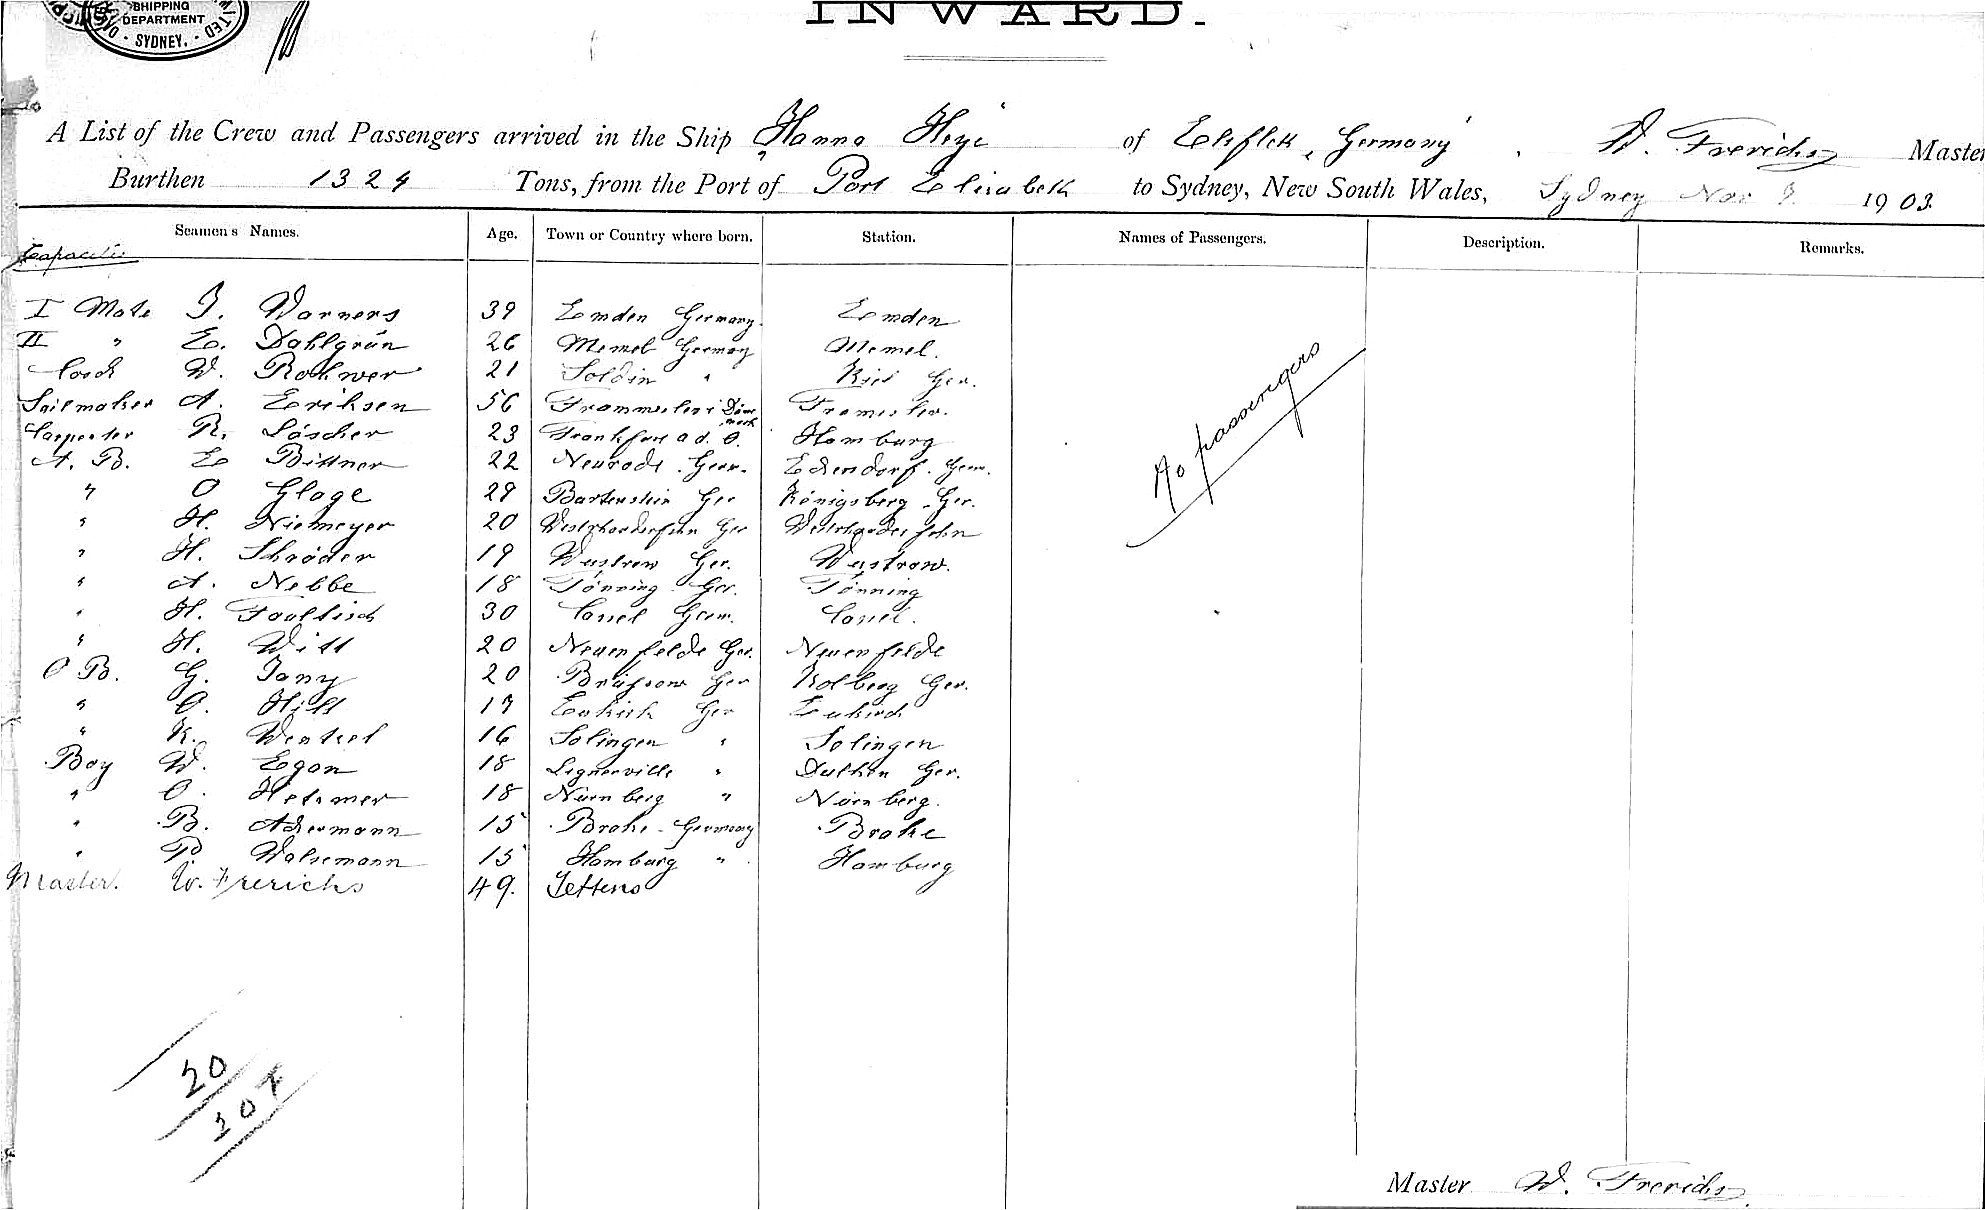 SHIPPING
DEPARTMENT
SYDNEY.
INWARD.
A List of the Crew and Passengers arrived in the Ship Hanna Heye of Elsfleth, Germany W. Frerichs Master
Burthen 1324 Tons, from the Port of Port Elizabeth to Sydney, New South Wales, Sydney Nov 9. 1903.
Seamen's Names. Age. Town or Country where born. Station. Names of Passengers. Description. Remarks.
Capacitie
I Mate J. Warners 39 Emden Germany. Emden
II " E. Dahlgrün 26 Memel Germany Memel.
Cook W. Rohwer 21 Soldin " Kiel Ger.
Sailmaker A. Eriksen 56 Däne mark
Carpenter R. Löscher 23 Frankfurt a d. O. Hamburg
A. B. E Bittner 22 Neurode. Germ. Germ.
" O Gloge 29 Bartenstein Ger Königsberg. Ger.
" H. Niemeyer 20 Westrhauderfehn Ger Westrhauderfehn
" H. Schröder 19 Wustrow Ger. Wustrow.
" A. Nebbe 18 Tönning Ger. Tönning
" H. 30 Cassel Germ. Cassel.
" H. Witt 20 Neuenfelde Ger. Neuenfelde
O B. G. Jany 20 Brüssow Ger Kolberg Ger.
" O. Hill 17 Enkirch Ger Enkirch
" K. Wentzel 16 Solingen " Solingen
Boy W. Egon 18 " Ger.
" O. 18 Nürnberg " Nürnberg.
" B. Ackermann 15 Brake. Germany Brake
" P Walsemann 15 Hamburg " Hamburg
Master. W. Frerichs 49. Tettens
No passengers
20
Master W. Frerichs